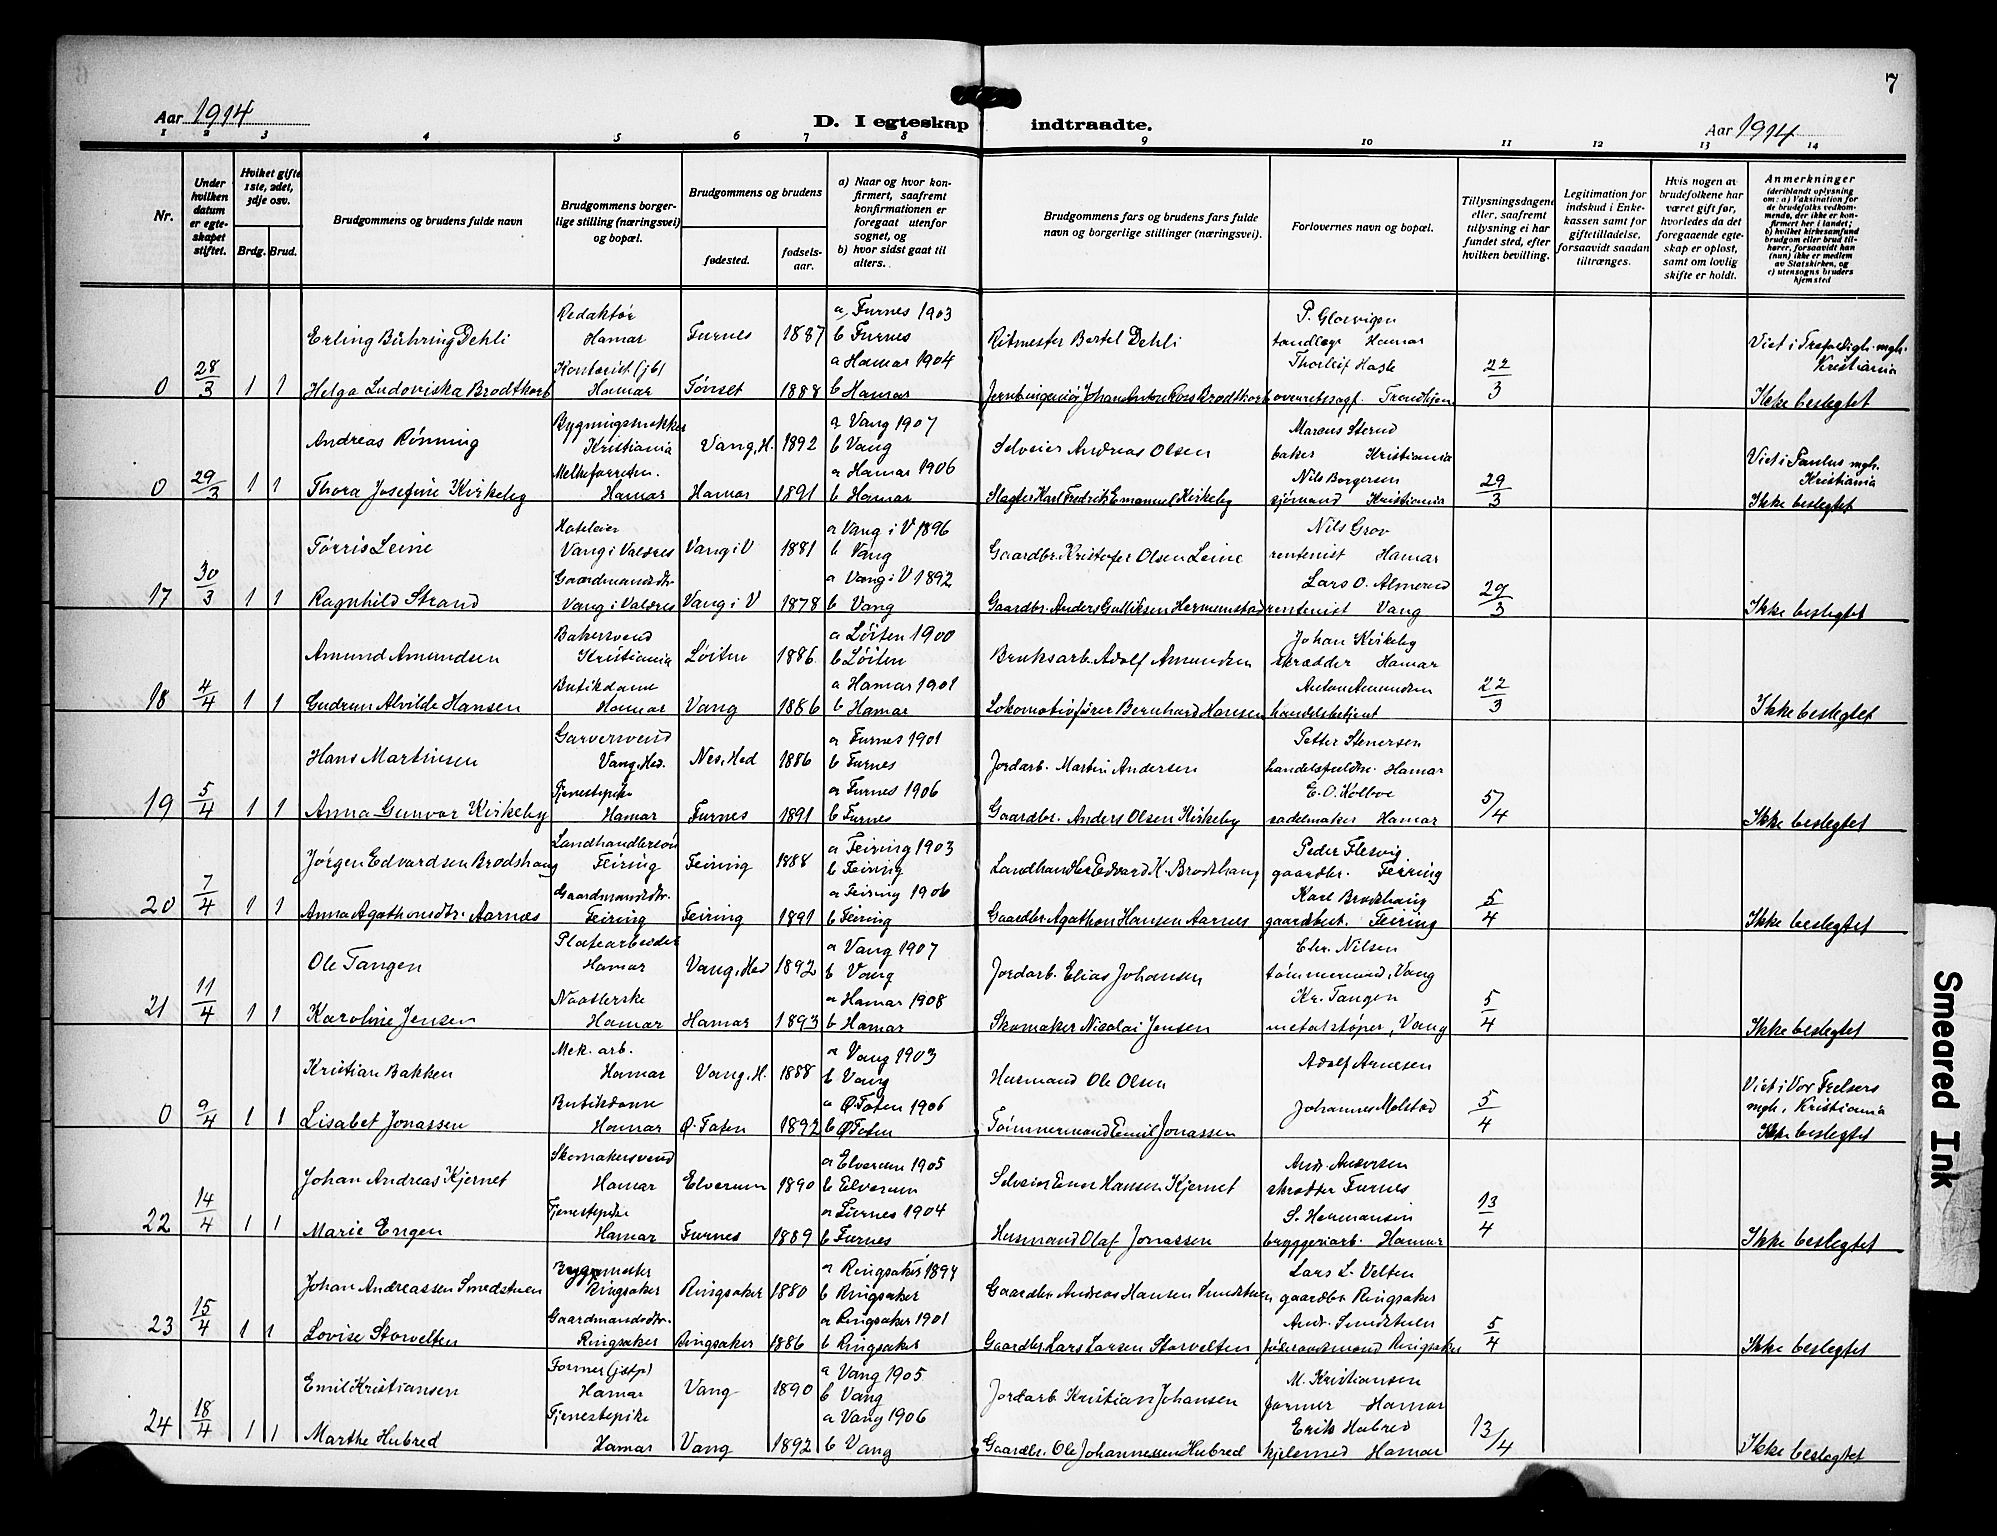 7
Aar 1914
D. I egteskap indtraadte.
Aar 1914
1 2 3 4 5 6 7 8 9 10 11 12 13 14
Nr.
Under hvilken datum er egteskapet stiftet.
Hviket gifte 1ste, 2det, 3dje osv.
Brdg. Brud.
Brudgommens og brudens fulde navn
Brudgommens borgerlige stilling (næringsvei) og bopæl.
Brudgommens og brudens
fødested. fødselsaar.
a) Naar og hvor konfirmert, saafremt konfirmationen er foregaat utenfor sognet, og
b) hvor sidst gaat til alters.
Brudgommens fars og brudens fars fulde navn og borgerlige stillinger (næringsvei).
Forlovernes navn og bopæl.
Tillysningsdagene eller, saafremt tillysning ei har fundet sted, efter hvilken bevilling.
Legitimation for indskud i Enkekassen samt for giftetilladelse, forsaavidt saadan tiltrænges.
Hvis nogen av brudefolkene har været gift før, hvorledes da det foregaaende egteskap er opløst, samt om lovlig skifte er holdt.
Anmerkninger
(deriblandt oplysning om: a) Vaksination for de brudefolks vedkommende, der ikke er konfirmert her i landet; b) hvilket kirkesamfund brudgom eller brud tilhører, forsaavidt han (hun) ikke er medlem av Statskirken, og c) utensogns bruders hjemsted
Erling Bühring Dehli Redaktør Hamar Furnes 1887 a Furnes 1903 b Furnes Ritmester Bertel Dehli P. Glorvigen tandlæge Hamar Viet i Trefoldigh. mgh. Kristiania
0 28/3 1 1 Helga Ludoviska Brodtkorb Kontorist (jb) Hamar Tønset 1888 a Hamar 1904 b Hamar Jernb.ingeniør Johan Anton Ross Brodtkorb Thorleif Hasle overretssagf. Trondhjem 22/3 Ikke beslegtet
Andreas Rønning Bygningssnekker Kristiania Vang, H. 1892 a Vang 1907 b Vang Selveier Andreas Olsen Marcus Sterud baker Kristiania Viet i Paulus mgh. Kristiania
0 29/3 1 1 Thora Josefine Kirkeby Melkeforretn. Hamar Hamar 1891 a Hamar 1906 b Hamar Slagter Karl Fredrik Emanuel Kirkeby Nils Borgersen sjømand Kristiania 29/3 Ikke beslegtet
Tørris Leine Hoteleier Vang i Valdres Vang i V 1881 a Vang i V 1896 b Vang Gaardbr. Kristofer Olsen Leine Nils Grov rentenist Hamar
17 30/3 1 1 Ragnhild Strand Gaardmandsdtr. Vang i Valdres Vang i V 1878 a Vang i V 1892 b Vang Gaardbr. Anders Gulliksen Hermundstad Lars O. rentenist Vang 29/3 Ikke beslegtet
Amund Amundsen Bakersvend Kristiania Løiten 1886 a Løiten 1900 b Løiten Bruksarb. Adolf Amundsen Johan Kirkeby skrædder Hamar
18 4/4 1 1 Gudrun Alvilde Hansen Butikdame Hamar Vang 1886 a Hamar 1901 b Hamar Lokomotivfører Bernhard Hansen Anton Amundsen handelsbetjent 22/3 Ikke beslegtet
Hans Martinsen Garversvend Vang, Hed. Nes, Hed 1886 a Furnes 1901 b Furnes Jordarb. Martin Andersen Petter Stenersen handelsfuldm. Hamar
19 5/4 1 1 Anna Gunvor Kirkeby Tjenestepike Hamar Furnes 1891 a Furnes 1906 b Furnes Gaardbr. Anders Olsen Kirkeby E. O. Kolboe sadelmaker Hamar 5/4 Ikke beslegtet
Jørgen Edvardsen Brodshaug Landhandlersøn Feiring Feiring 1888 a Feiring 1903 b Feiring Landhandler Edvard K. Brodshaug Peder Flesvig gaardbr. Feiring
20 7/4 1 1 Anna Agathonsdtr. Aarnæs Gaardmandsdtr. Feiring Feiring 1891 a Feiring 1906 b Feiring Gaardbr. Agathon Hansen Aarnes Karl Brodshaug gaardbest. Feiring 5/4 Ikke beslegtet
Ole Tangen Platearbeider Hamar Vang, Hed 1892 a Vang 1907 b Vang Jordarb. Elias Johansen Chr. Nilsen tømmermand, Vang
21 11/4 1 1 Karoline Jensen Naatlerske Hamar Hamar 1893 a Hamar 1908 b Hamar Skomaker Nicolai Jensen Kr. Tangen metalstøper, Vang 5/4 Ikke beslegtet
Kristian Bakken Mek. arb. Hamar Vang, H. 1888 a Vang 1903 b Vang Husmand Ole Olsen Adolf Arnesen Viet i Vor Frelsers mgh, Kristiania
0 9/4 1 1 Lisabet Jonassen Butikdame Hamar Ø. Toten 1892 a Ø. Toten 1906 b Ø Toten Tømmermand Emil Jonassen Johannes Molstad 5/4 Ikke beslegtet
Johan Andreas Kjernet Skomakersvend Hamar Elverum 1890 a Elverum 1905 b Elverum Selveier Enor Hansen Kjernet Andr. Andersen skrædder Furnes
22 14/4 1 1 Marie Engen Tjenestepike Hamar Furnes 1889 a Furnes 1904 b Furnes Husmand Olaf Jonassen S. Hermansen bryggeriarb. Hamar 13/4 Ikke beslegtet
Johan Andreassen Smedstuen Byggmester Ringsaker Ringsaker 1880 a Ringsaker 1894 b Ringsaker Gaardbr. Andreas Hansen Smedstuen Lars L. Velten gaardbr Ringsaker
23 15/4 1 1 Lovise Storvelten Gaardmandsdtr. Ringsaker Ringsaker 1886 a Ringsaker 1901 b Ringsaker Gaardbr. Lars Larsen Storvelten Andr. Smedstuen føderaadsmand Ringsaker 5/4 Ikke beslegtet
Emil Kristiansen Former (jstp) Hamar Vang 1890 a Vang 1905 b Vang Jordarb. Kristian Johansen M. Kristiansen former Hamar
24 18/4 1 1 Marthe Hubred Tjenestepike Hamar Vang 1892 a Vang 1906 b Vang Gaardbr. Ole Johannessen Hubred Erik Hubred kjelsmed Hamar 13/4 Ikke beslegtet
Smeared Ink